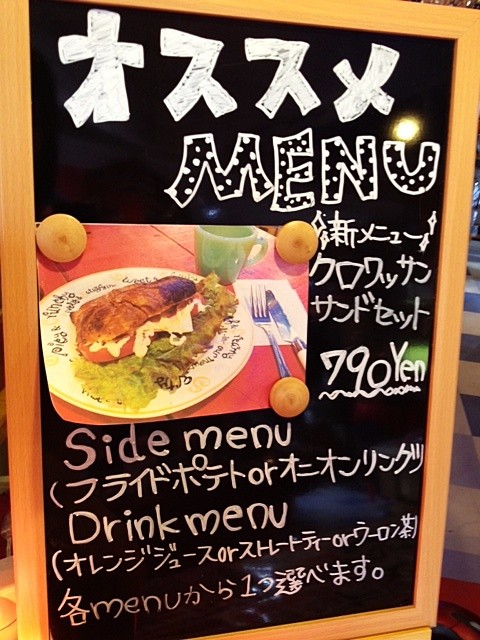 オススメ
MENU
新メニュー
クロワッサン
サンドセット
790Yen
Side menu
(フライドポテトorオニオンリング)
Drink menu
(オレンジジュースorストレートティーorウーロン茶)
各menuから1つ選べます。